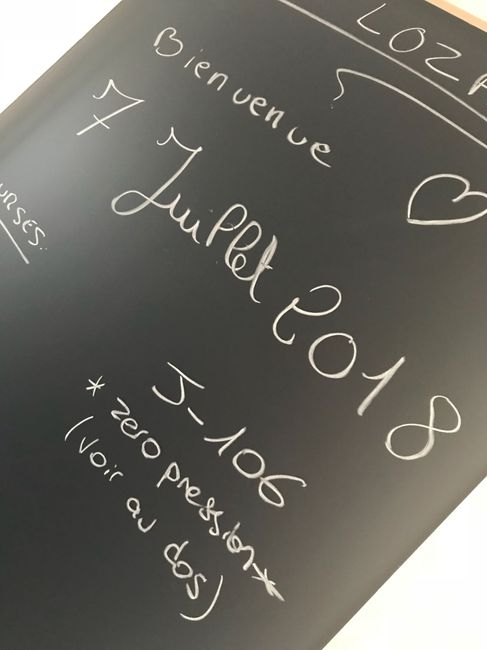 LOZ
Bienvenue
7 Juillet 2018
URSES:
J-106
* zero pression *
(voir au dos)